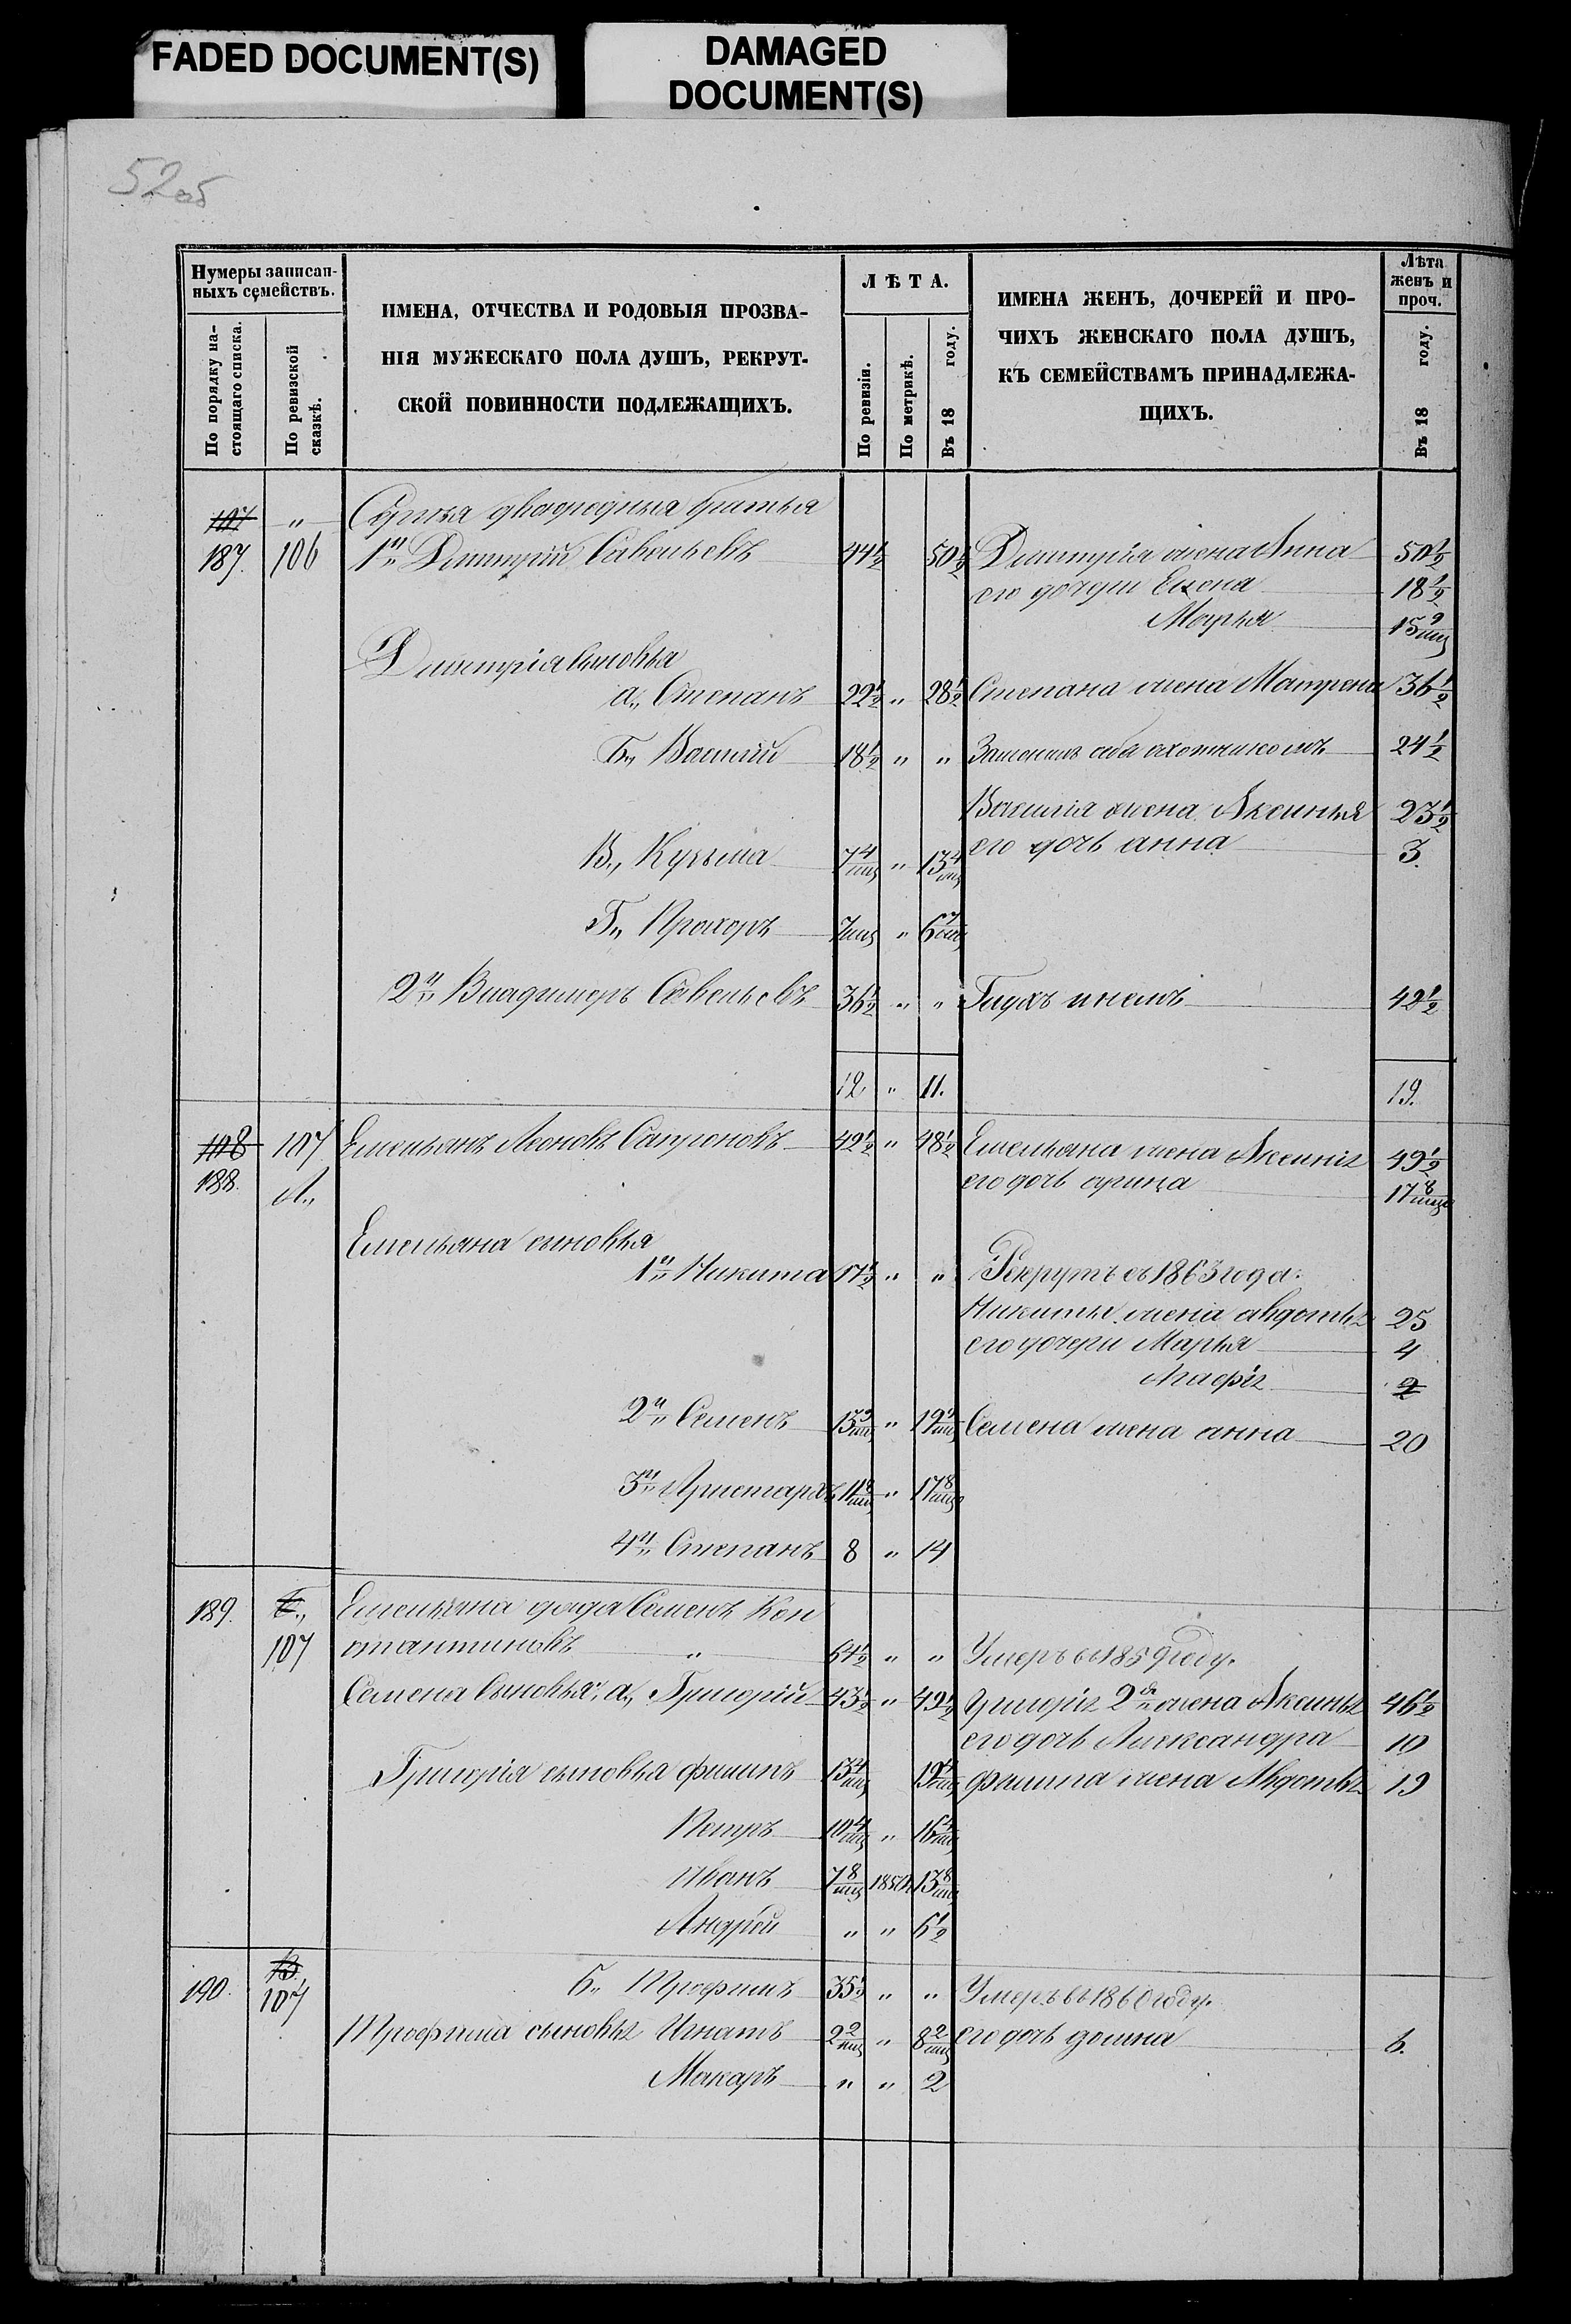 FADED DOCUMENT(S)
DAMAGED
DOCUMENT(S)
52об
Нумеры записан-
ныхъ семействъ.
По порядку на-
стоящаго списка.
По ревизской
сказкѣ.
ИМЕНА, ОТЧЕСТВА И РОДОВЫЯ ПРОЗВА-
НІЯ МУЖЕСКАГО ПОЛА ДУШЪ, РЕКРУТ-
СКОЙ ПОВИННОСТИ ПОДЛЕЖАЩИХЪ.
ЛѢТА.
По ревизіи.
По метрикѣ.
Въ 18 году.
ИМЕНА ЖЕНЪ, ДОЧЕРЕЙ И ПРО-
ЧИХЪ ЖЕНСКАГО ПОЛА ДУШЪ,
КЪ СЕМЕЙСТВАМЪ ПРИНАДЛЕЖА-
ЩИХЪ.
Лѣта
женъ и
проч.
Въ 18 году.
107 " Сергѣя двоюродныя братья
187. 106 1й Дмитрій Савельевъ 44½ 50½ Дмитрія жена Анна 50½
его дочери Елена 18½
Марья 15 9/мц
Дмитрія сыновья
а., Степанъ 22½ " 28½ Степана жена Матрена 36½
Б., Василій 18½ " " охотникомъ 24½
Василія жена Аксинья 23½
его дочь анна 3.
В., Кузьма 7 4/мц " 13 4/мц
Г., Прохоръ 7мц " 6 7/мц
2й Владимеръ Савельевъ 36½ " " Глухъ и нѣмъ 42½
12. " 11. 19.
108 107 Емельянъ Леоновъ Сапроновъ 42½ " 48½ Емельяна жена Аксинія 49½
188. А., его дочь арина 17 8/мц
Емельяна сыновья
1й Никита 17½ " " Рекрутъ съ 1863 года.
Никиты жена авдотья 25
его дочери Марья 4
Агафія 2
2й Семенъ 13 9/мц " 19 9/мц Семена жена анна 20
3й Аристархъ 11 8/мц " 17 8/мц
4й Степанъ 8 " 14
189. Б., Емельяна дядя Семенъ Кон
107 стантиновъ " 64½ " " Умеръ въ 1859 году.
Семена сыновья: а., Григорій 43½ " 49½ Григорія 2я жена Аксинья 46½
его дочь Александра 10
Григорія сыновья филипъ 13 4/мц 19 4/мц Филипа жена Авдотья 19
Петръ 10 4/мц " 16 4/мц
Иванъ 7 8/мц 1850 13 8/мц
Андрей " " 6½
190. В. 107 Б., Трофимъ 35½ " " Умеръ въ 1860 году.
Трофима сыновья Игнатъ 2 2/мц " 8 2/мц его дочь домна 6.
Макаръ " " 2